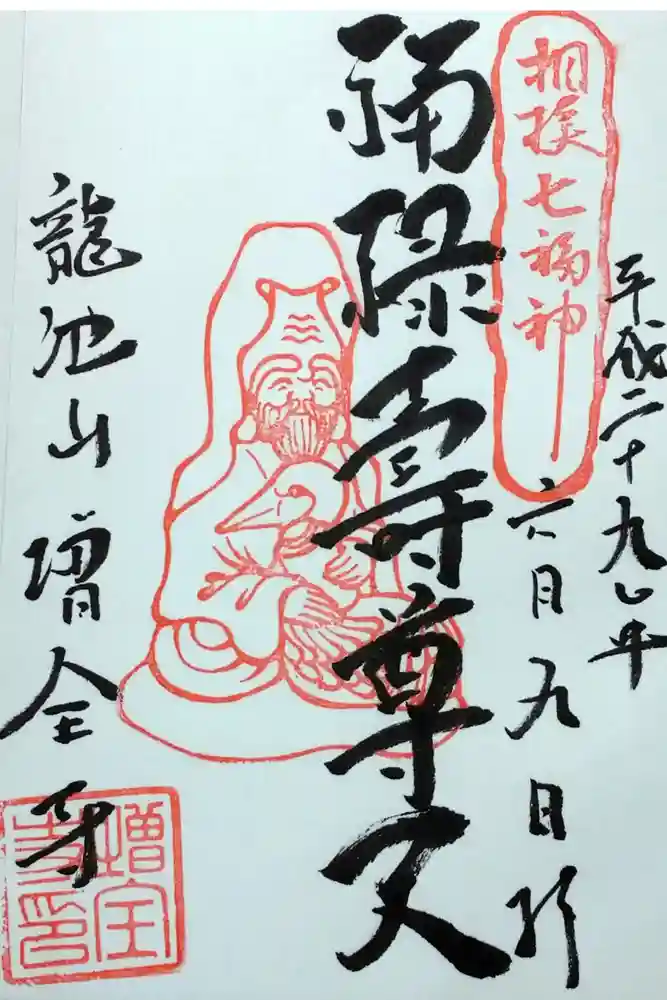 平成二十九年
相模七福神
六月九日
福禄壽尊天
龍池山 増全寺
増全
寺印